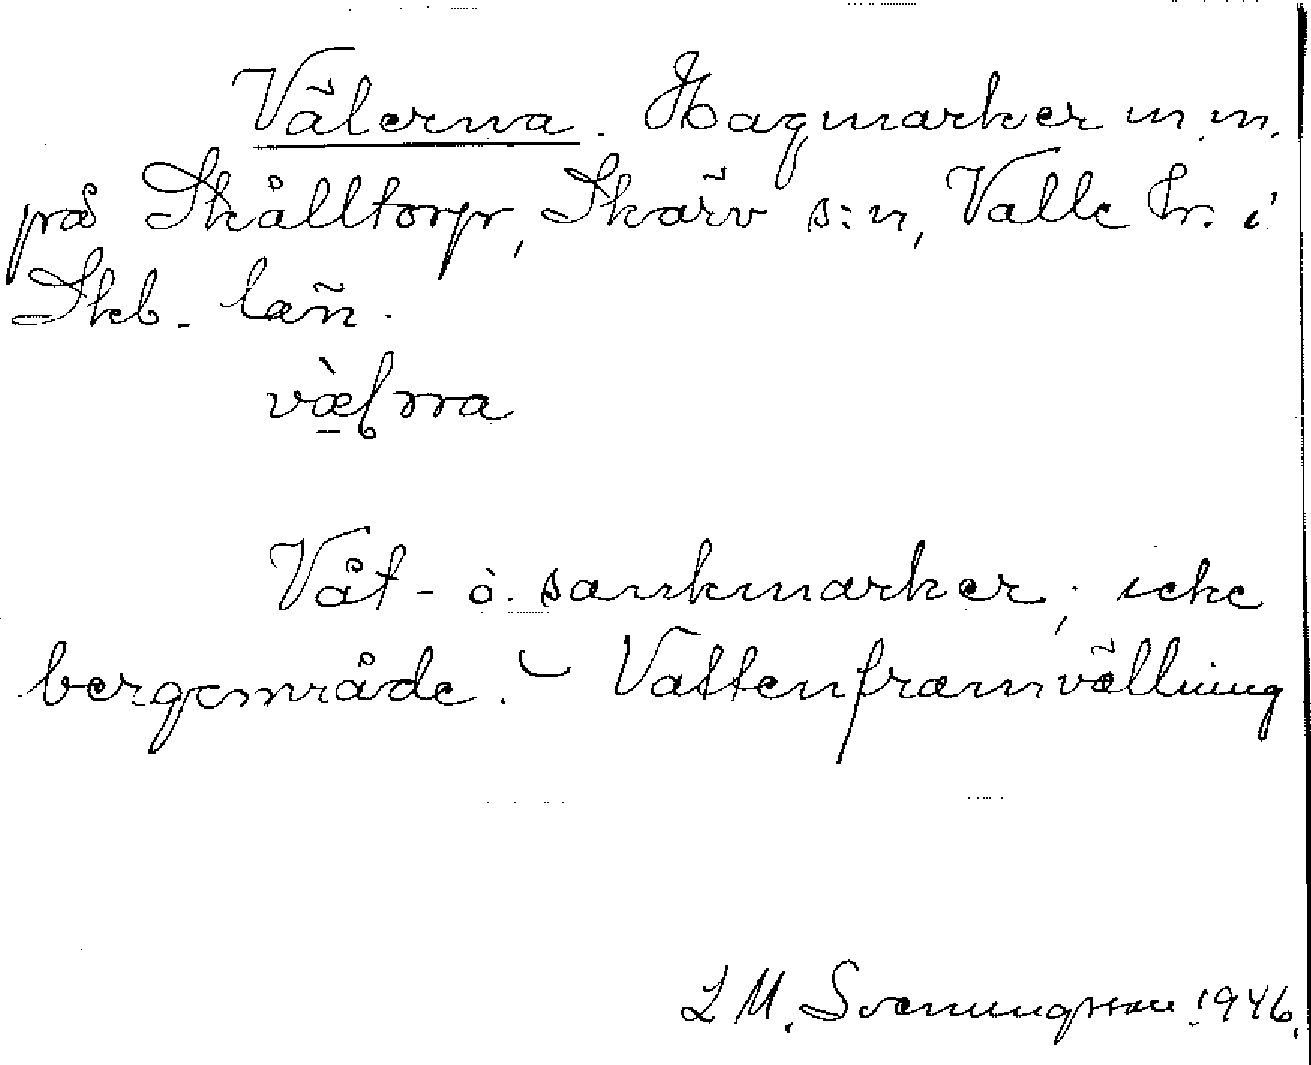 Välerna. Hagmarker m.m.
på Skålltorp, Skärv s:n, Valle hr. i
Skb. län.
Våt- o. sankmarker; icke
bergområde. – Vattenframvällning
L M. Svenungsson 1946.